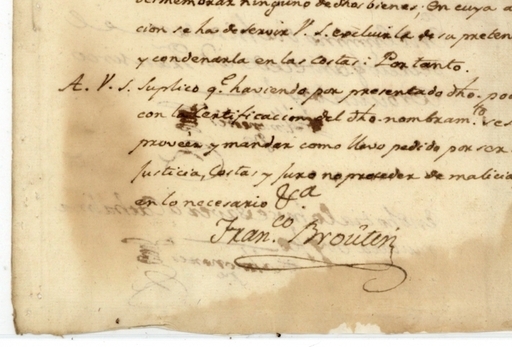 desmemorar ninguno de dhos bienes; En cuya a
cion se ha de servir V. S. excluirla de su preten
y condenarla en las costas: Por tanto.
A. V. S. Suplico q.e haviendo por presentado dho. pod
con la Certificacion del dho. nombram.to se s
proveer y mandar como llevo pedido por ser
Justicia, Costas y Juro no proceder de malicia
en lo necesario &a
Fran.co Broûten